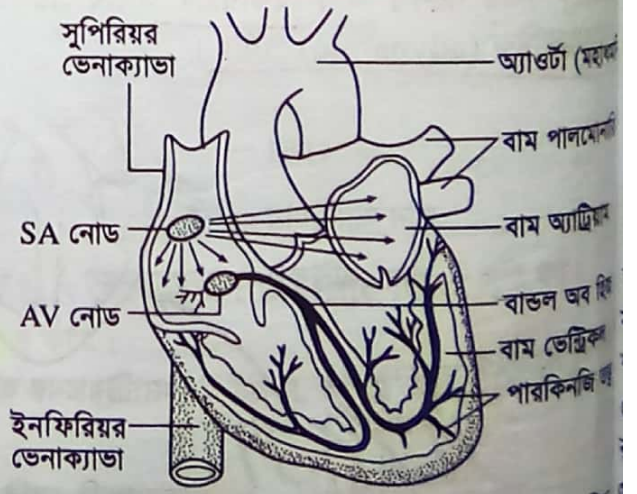 সুপিরিয়র
ভেনাক্যাভা
SA নোড
AV নোড
ইনফিরিয়র
ভেনাক্যাভা
অ্যাওর্টা
বাম
বাম অ্যাট্রিয়াম
বান্ডল অব
বাম
পারকিনজি